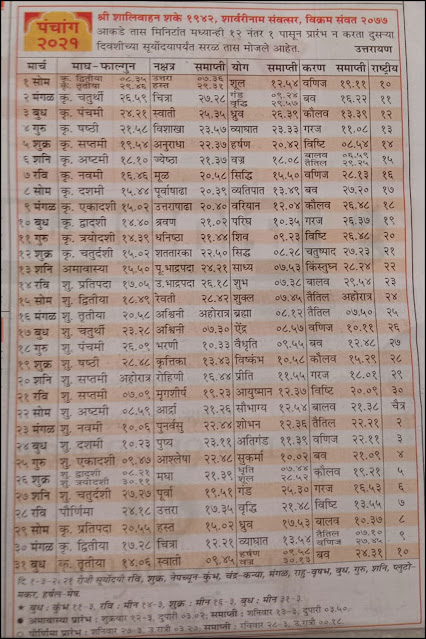 पंचांग
२०२१
श्री शालिवाहन शके १९४२, शार्वरीनाम संवत्सर, विक्रम संवत २०७७
आकडे तास मिनिटांत मध्यान्ही १२ नंतर १ पासून प्रारंभ न करता दुसऱ्या
दिवशीच्या सूर्योदयापर्यंत सरळ तास मोजले आहेत. उत्तरायण
मार्च माघ-फाल्गुन समाप्ती नक्षत्र समाप्ती योग समाप्ती करण समाप्ती राष्ट्रीय
१ सोम कृ. द्वितीया ०८.३५ उत्तरा ०७.३६ शूल १२.५४ वणिज १९.११ १०
कृ. तृतीया २९.४६ हस्त २९.३१
२ मंगळ कृ. चतुर्थी २६.५९ चित्रा २७.२८ गंड ०९.२४ बव १६.२२ ११
वृद्धि २९.५७
३ बुध कृ. पंचमी २४.२१ स्वाती २५.३५ ध्रुव २६.३९ कौलव १३.३९ १२
४ गुरु कृ. षष्ठी २१.५८ विशाखा २३.५७ व्याघात २३.३३ गरज ११.०८ १३
५ शुक्र कृ. सप्तमी १९.५४ अनुराधा २२.३७ हर्षण २०.४२ विष्टि ०८.५४ १४
६ शनि कृ. अष्टमी १८.१० ज्येष्ठा २१.३७ वज्र १८.०८ बालव ०६.५९ १५
तैतिल २९.२५
७ रवि कृ. नवमी १६.४६ मूळ २०.५८ सिद्धि १५.५० वणिज २८.१३ १६
८ सोम कृ. दशमी १५.४४ पूर्वाषाढा २०.३९ व्यतिपात १३.४९ बव २७.२० १७
९ मंगळ कृ. एकादशी १५.०२ उत्तराषाढा २०.४० वरियान १२.०४ कौलव २६.४८ १८
१० बुध कृ. द्वादशी १४.४० श्रवण २१.०२ परिघ १०.३५ गरज २६.३७ १९
११ गुरु कृ. त्रयोदशी १४.३९ धनिष्ठा २१.४४ शिव ०९.२३ विष्टि २६.४८ २०
१२ शुक्र कृ. चतुर्दशी १५.०२ शततारका २२.५० सिद्ध ०८.२८ चतुष्पाद २७.२३ २१
१३ शनि अमावास्या १५.५० पू.भाद्रपदा २४.२१ साध्य ०७.५३ किंस्तुघ्न २८.२४ २२
१४ रवि शु. प्रतिपदा १७.०५ उ.भाद्रपदा २६.१८ शुभ ०७.३८ बालव २९.५४ २३
१५ सोम शु. द्वितीया १८.४९ रेवती २८.४२ शुक्ल ०७.४५ तैतिल अहोरात्र २४
१६ मंगळ शु. तृतीया २०.५८ अश्विनी अहोरात्र ब्रह्मा ०८.१२ तैतिल ०७.५० २५
१७ बुध शु. चतुर्थी २३.२८ अश्विनी ०७.३० ऐंद्र ०८.५७ वणिज १०.११ २६
१८ गुरु शु. पंचमी २६.०९ भरणी १०.३३ वैधृति ०९.५५ बव १२.४८ २७
१९ शुक्र शु. षष्ठी २८.४८ कृत्तिका १३.४३ विष्कंभ १०.५८ कौलव १५.२९ २८
२० शनि शु. सप्तमी अहोरात्र रोहिणी १६.४४ प्रीति ११.५५ गरज १८.०१ २९
२१ रवि शु. सप्तमी ०७.०९ मृगशीर्ष १९.२३ आयुष्मान १२.३७ विष्टि २०.०९ ३०
२२ सोम शु. अष्टमी ०८.५९ आर्द्रा २१.२६ सौभाग्य १२.५४ बालव २१.३८ चैत्र
२३ मंगळ शु. नवमी १०.०६ पुनर्वसु २२.४४ शोभन १२.३६ तैतिल २२.२१ २
२४ बुध शु. दशमी १०.२३ पुष्य २३.११ अतिगंड ११.३९ वणिज २२.११ ३
२५ गुरु शु. एकादशी ०९.४७ आश्लेषा २२.४८ सुकर्मा १०.०२ बव २१.०९ ४
२६ शुक्र शु. द्वादशी ०८.२१ मघा २१.३९ धृति ०७.४४ कौलव १९.२१ ५
शु. त्रयोदशी ३०.११ शूल २८.५२
२७ शनि शु. चतुर्दशी २७.२७ पूर्वा १९.५१ गंड २५.३० गरज १६.५३ ६
२८ रवि पौर्णिमा २४.१८ उत्तरा १७.३५ वृद्धि २१.४८ विष्टि १३.५५ ७
२९ सोम कृ. प्रतिपदा २०.५५ हस्त १५.०२ ध्रुव १७.५३ बालव १०.३७ ८
३० मंगळ कृ. द्वितीया १७.२८ चित्रा १२.२१ व्याघात १३.५४ तैतिल ०७.१० ९
वणिज २७.४५
३१ बुध कृ. तृतीया १४.०६ स्वाती ०९.४५ हर्षण ०९.५८ बव २४.३१ १०
वज्र
दि. १-३-२०२१ रोजी सूर्योदयी रवि, शुक्र, नेपच्यून-कुंभ, चंद्र-कन्या, मंगळ, राहु-वृषभ, बुध, गुरु, शनि, प्लुटो-
मकर, हर्षल-मेष.
★ बुध : कुंभ ११-३, रवि : मीन १४-३, शुक्र : मीन १६-३, बुध : मीन ३१-३.
◇ अमावास्या प्रारंभ : शुक्रवार १२-३, दुपारी ०३.०२; समाप्ती : शनिवार १३-३, दुपारी ०३.५०.
पौर्णिमा प्रारंभ : शनिवार २७-३, समाप्ती : रविवार २८-३,